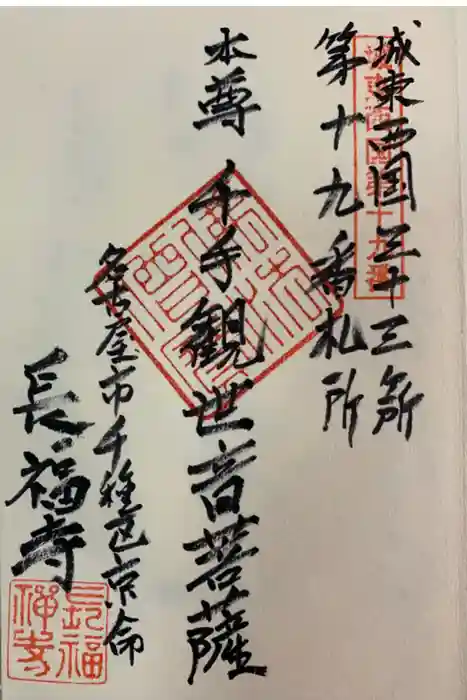 城東西国三十三箇所
第十九番札所
本尊 千手観世音菩薩
名古屋市千種区京命
長福寺
城東西国第十九番
長福
禅寺